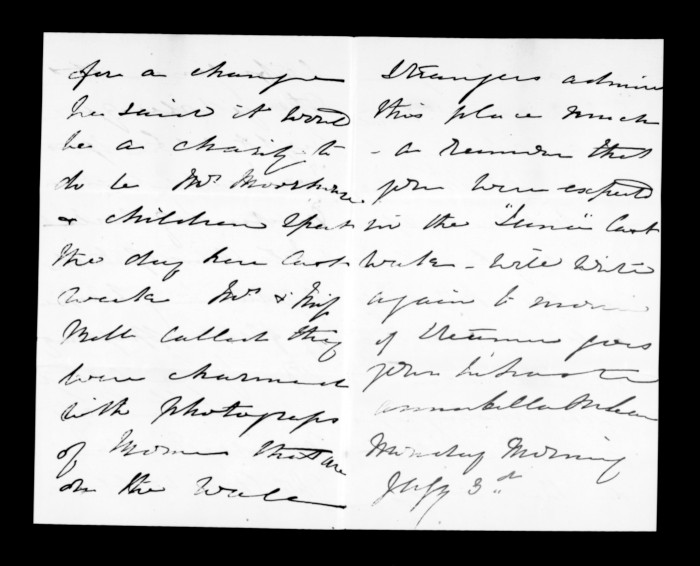 for a change
he said it would
be a charity to
do so Mrs Moorhouse
& children spent
the day here last
week Mrs & Miss
Bell called they
were charmed
with photographs
of Mornes that are
on the Walls
Strangers admire
this place much
- a rumour that
you were expected
in the "Luna" last
Week - will write
again to morrow
if Steamer goes
your
Annabella McLean
Monday Morning
July 3rd